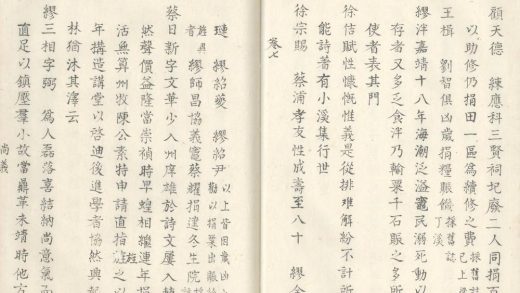 顧天德 練應科三賢祠圮廢二人同捐百
以助修仍捐田一區為續修之費 採舊 已上
王楫 劉智俱凶歲捐糧賑饑 採舊誌 丁溪
繆泮嘉靖十八年海潮泛溢竈民溺死動以
存者又多乏食泮乃輸粟千石賑之多所
使者表其門
徐佶賦性慷慨惟義是從排難解紛不計所
能詩著有小溪集行世
徐宗賜 蔡浦孝友性成壽至八十 繆全
卷七
璉 繆紹夔 繆紹尹 以上皆因歲凶 以捐粟出賑給
旌異 繆師昌協義竈蔡耀捐逮冬生院
蔡日新字文華少入州庠雄於詩文屢入
聲價益隆當崇禎時旱蝗相繼連年損
活無算州牧陳公素特申請直指旌之以
年構造講堂以啟迪後進學者翕然興起
林猶沐其澤云
繆三相字弼 為人磊落喜結納尚意氣而
直足以鎮壓羣小故當鼎革未靖時他方
尚義